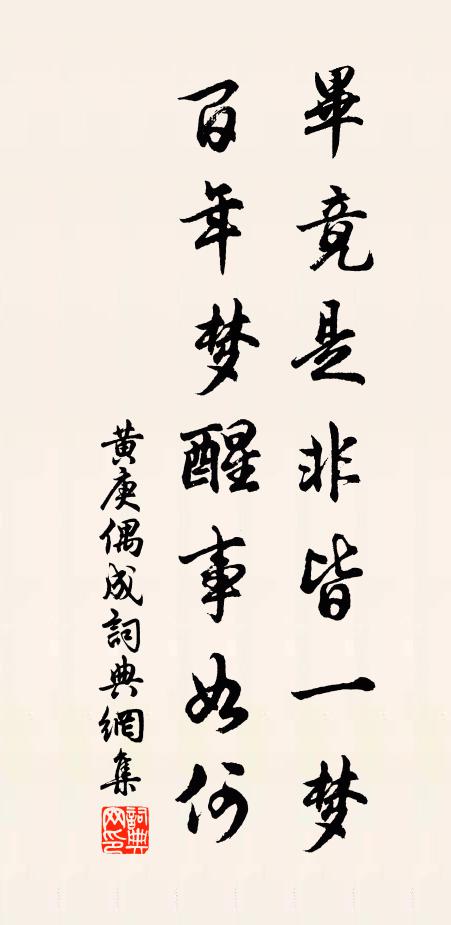 畢竟是非皆一梦
百年梦醒事如何
黄庚偶成詞典網集
詞典网印